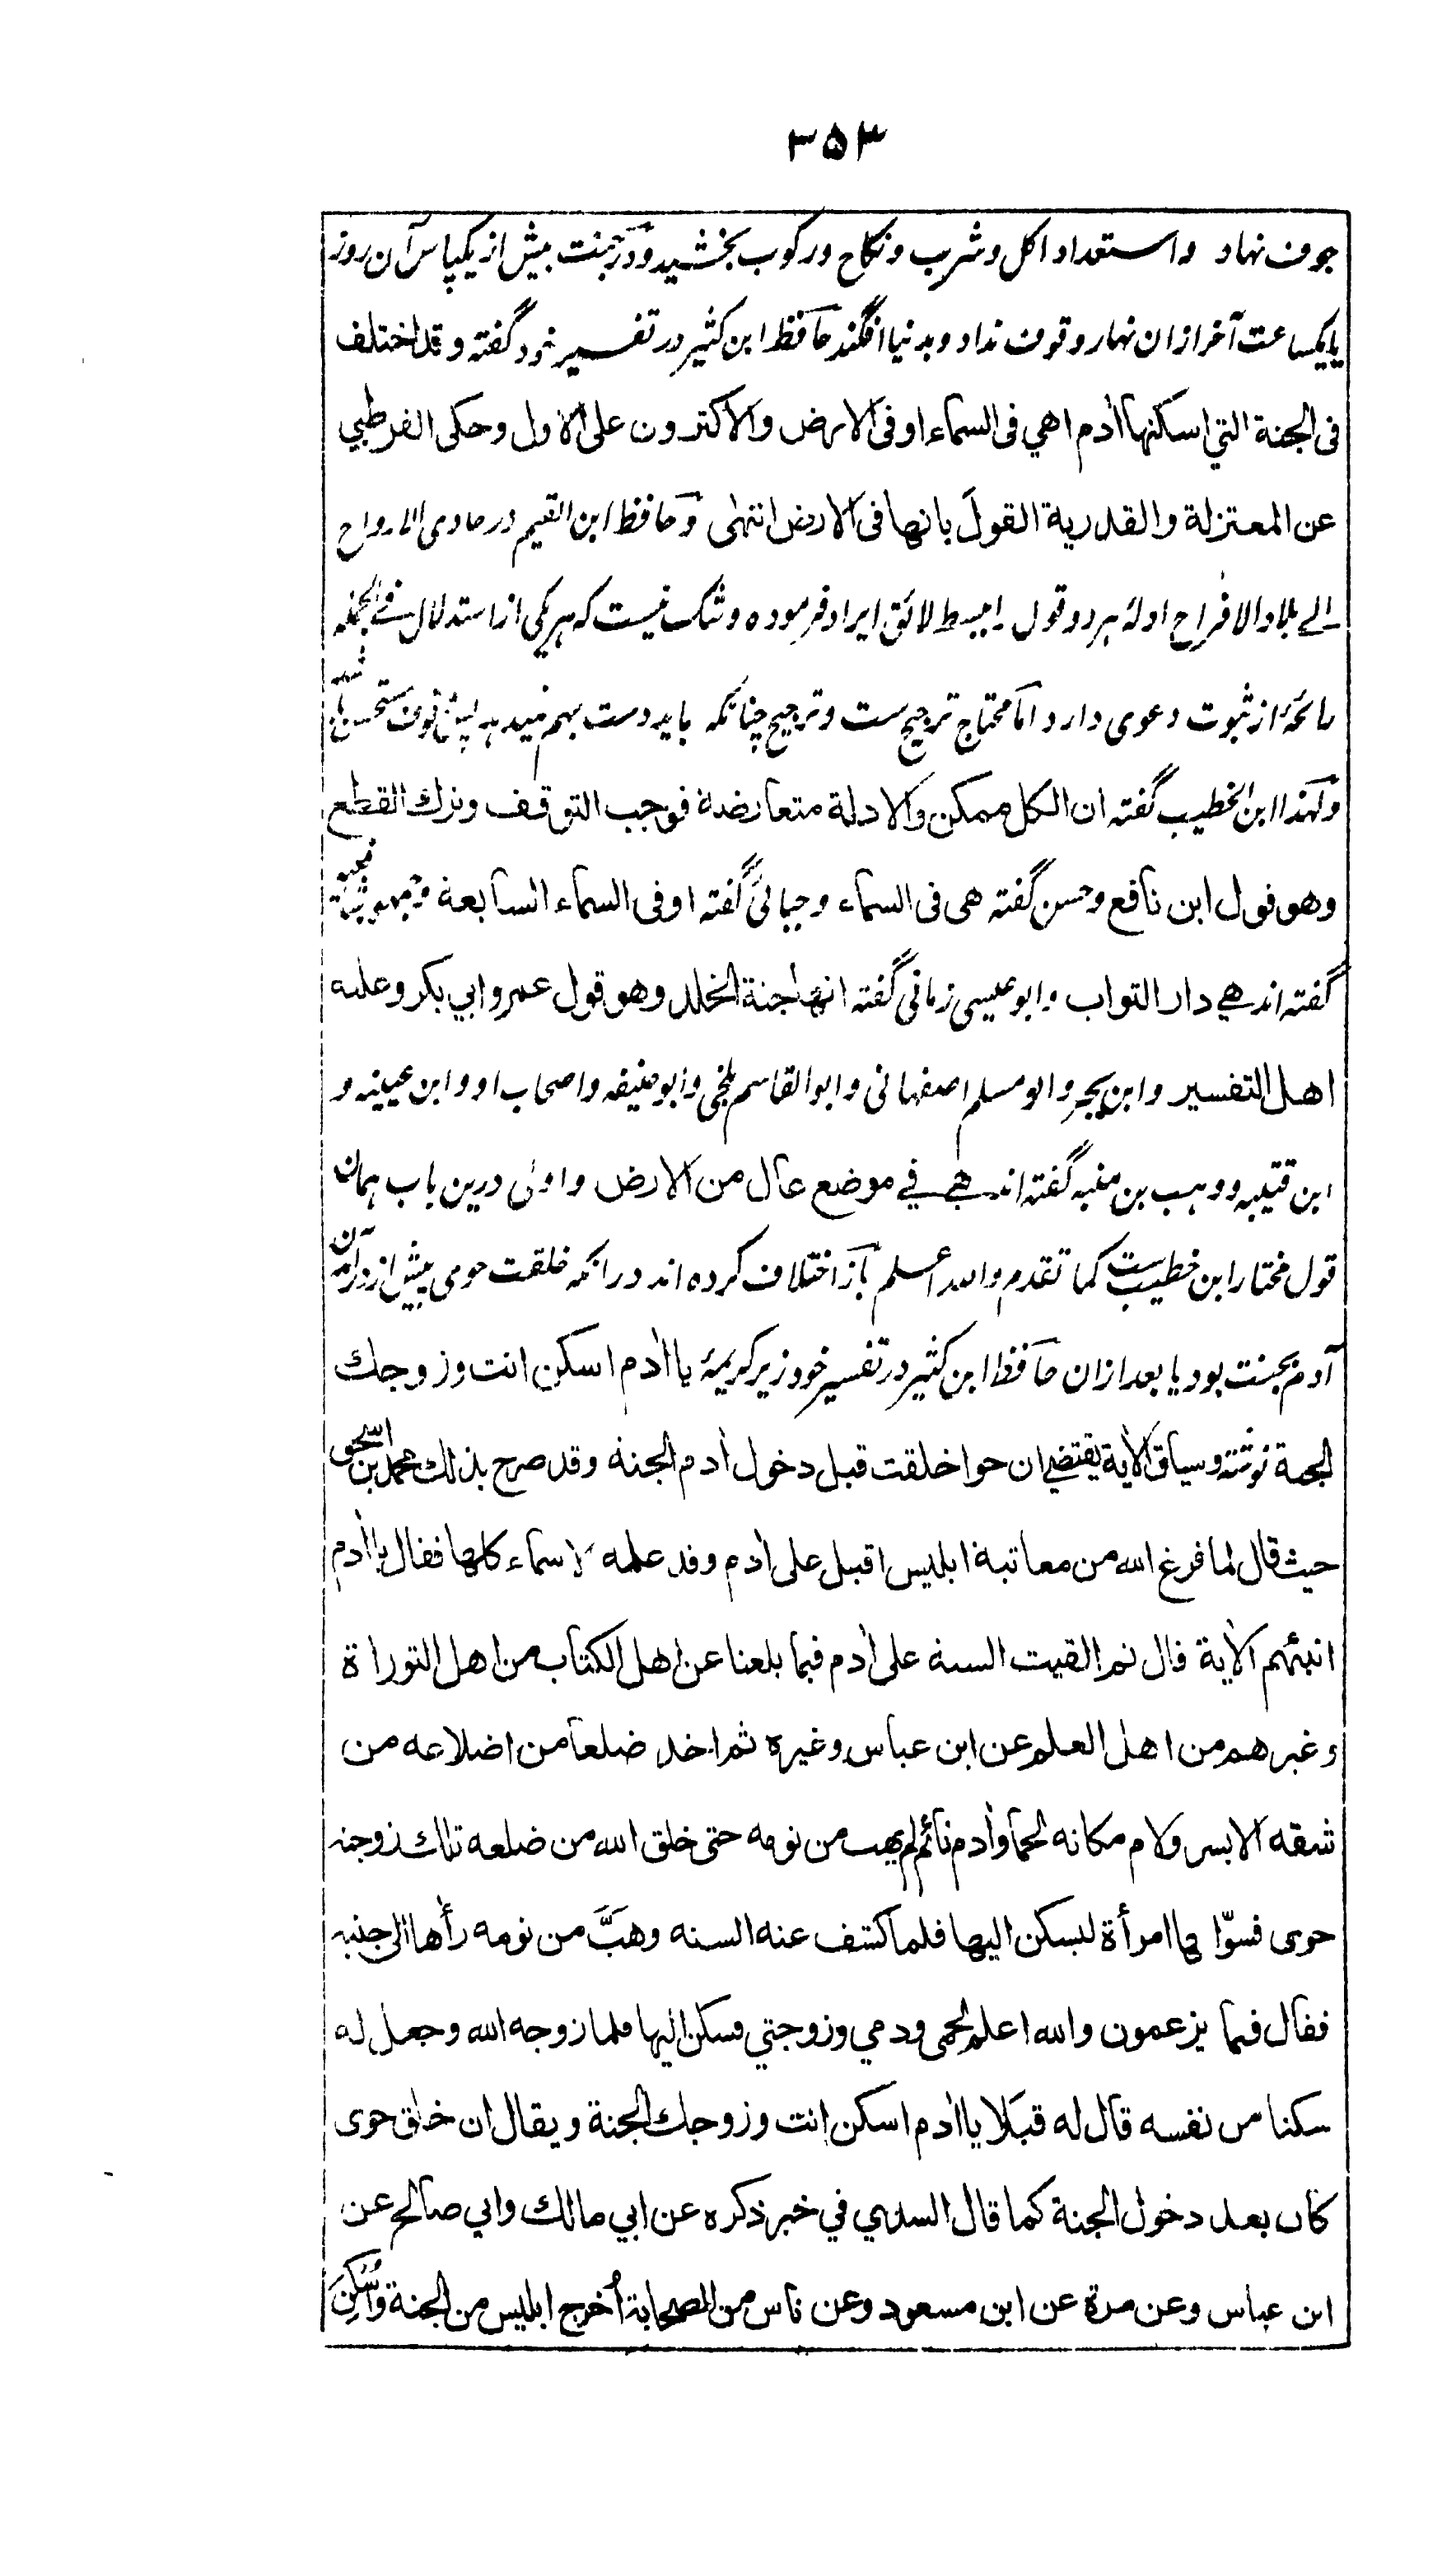 ۳۵۳
جوف نهاد و استعداد اکل و شرب و نکاح و رکوب بخشید و در جنت بیش از یکپاس آن روز
یا یکساعت آخر ازان نهار وقوف نداد و بدنیا افگند حافظ ابن کثیر در تفسیر خود گفته وقد اختلف
فی الجنة التي اسكنها اٰدم اهي فی السماء او فی الارض والاکثرون علی الاول وحکی القرطبي
عن المعتزلة والقدرية القول بانها فی الارض انتهٰی و حافظ ابن القیم در حادی الارواح
الے بلاد الافراح ادلهٔ هر دو قول را ببسط لائق ایراد فرموده و شک نیست که هر یکی از استدلال فی الجمله
رائحهٔ از ثبوت دعوی دارد اما محتاج ترجیح ست و ترجیح چنانکه باید دست بهم نمیدهد پس توقف مستحسن باشد
و لهذا ابن الخطیب گفته ان الکل ممکن والادلة متعارضة فوجب التوقف وترك القطع
وهو قول ابن نافع و حسن گفته هی فی السماء و جبائی گفته او فی السماء السابعة و جمهور
گفته اند هے دار الثواب و ابو عیسی رمانی گفته انها جنة الخلد وهو قول عمر وابي بکر وعلیه
اهل التفسیر و ابن بحر و ابو مسلم اصفهانی و ابو القاسم بلخی و ابو حنیفه و اصحاب او و ابن عیینه و
ابن قتیبه و وهب بن منبه گفته اند هے فے موضع عال من الارض و اولی درین باب همان
قول مختار ابن خطیب ست کما تقدم والله اعلم باز اختلاف کرده اند در انکه خلقت حوی پیش از در آمدن
آدم بجنت بود یا بعد ازان حافظ ابن کثیر در تفسیر خود زیر کریمهٔ یا اٰدم اسکن انت وزوجك
الجنة نوشته وسیاق الاٰیة یقتضی ان حوا خلقت قبل دخول اٰدم الجنة وقد صرح بذلك محمد بن اسحق
حیث قال لما فرغ الله من معاتبة ابلیس اقبل علی اٰدم وقد علمه الاسماء کلها فقال یا اٰدم
انبئهم الاٰیة قال ثم القیت السنة علی اٰدم فیما بلغنا عن اهل الکتاب من اهل التوراة
وغیرهم من اهل العلم عن ابن عباس وغیره ثم اخذ ضلعا من اضلاعه من
شقه الایسر ولام مکانه لحما واٰدم نائم لم یهب من نومه حتی خلق الله من ضلعه تلك زوجته
حوی فسوّاها امرأة لیسکن الیها فلما کشف عنه السنه وهبَّ من نومه رأٰها الی جنبه
فقال فیما یزعمون والله اعلم لحمی ودمي وزوجتي فسکن الیها فلما زوجه الله وجعل له
سکنا من نفسه قال له قبلا یا اٰدم اسکن انت وزوجك الجنة ویقال ان خلق حوی
کان بعد دخول الجنة کما قال السدي في خبر ذکره عن ابي مالك وابي صالح عن
ابن عباس وعن مرة عن ابن مسعود وعن ناس من الصحابة اُخرج ابلیس من الجنة واُسْکِنَ